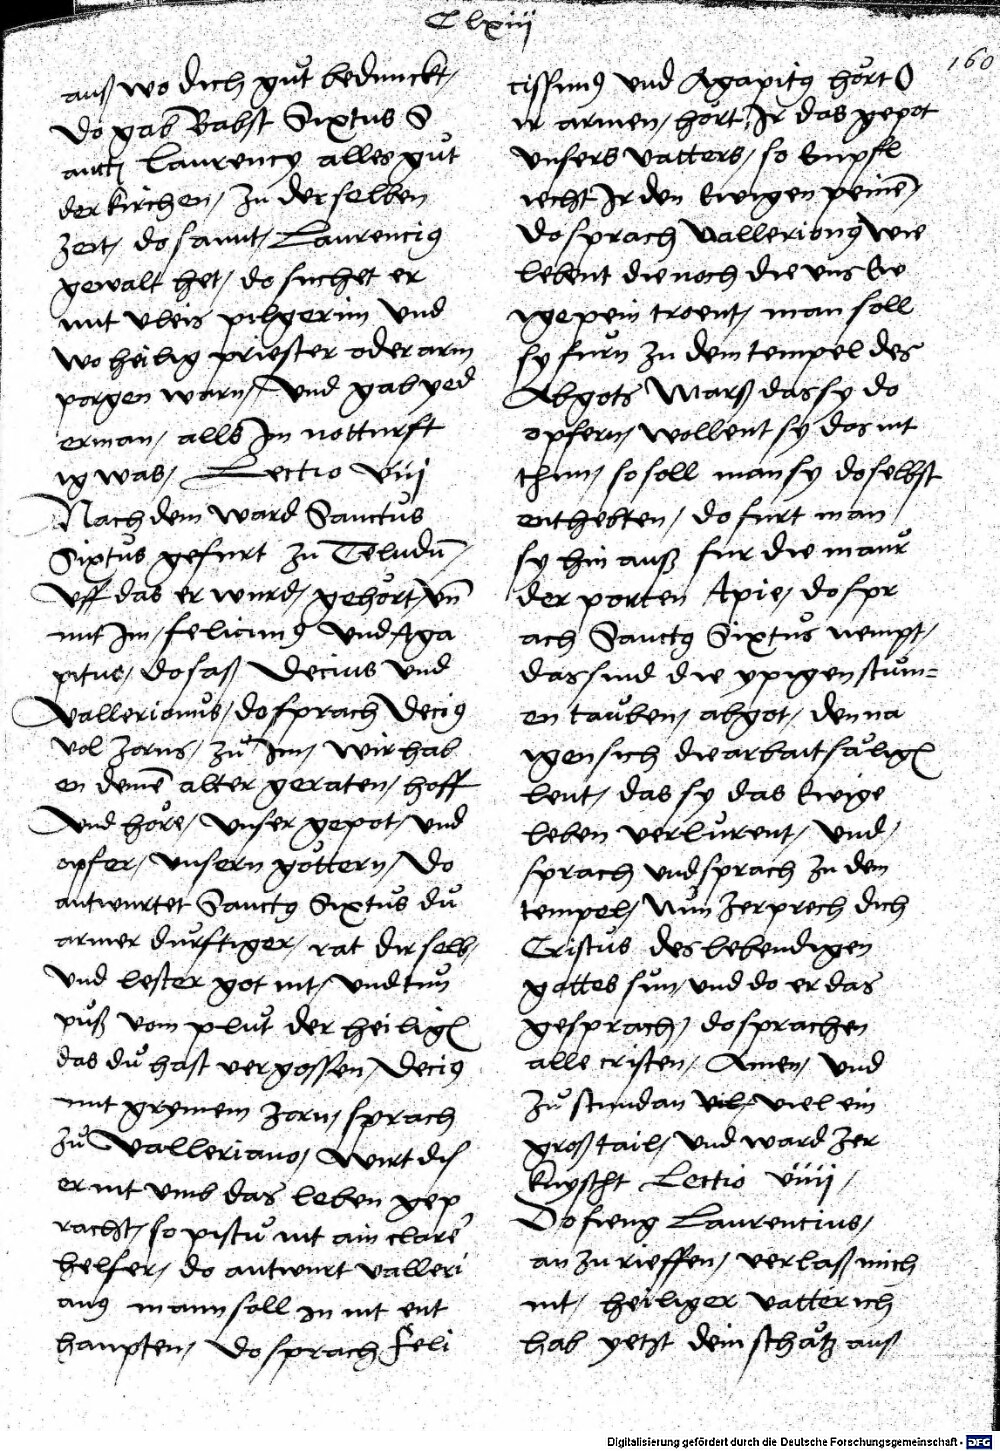 Clxiij
160
auß wo dich gůt bedunckt /
do gab Babst Sixtus S
auctj Laurency alles gůt
der kirchen / Zu der selben
Zeit / do sannt / Laurencius
gewalt het / do suchet er
mit vleis pilgerim vnd
wo heilig priester oder arm
porgen warn / Vnd gab yed
erman / alls Im notturft
ig was / Lectio viij
Nach dem ward Sanctus
Sixtus gefurt zu Teludū /
Vff das er wurd / gehört / vn̄
mit Im / felicimus vnd Aga
pitus / do saß Decius vnd
Vallerianus / do sprach Decius
vol zorns / zů Im / wir hab
en deinē alter geraten / hoff
Vnd höre / vnser gepot / vnd
opfer / vnsern göttern / Do
antwurtet Sanctus Sixtus du
armer dürftiger / rat dir selb /
vnd lester got nit / vnd tun
půß vom plůt der heilig
das dů hast vergossen / Decius
mit grymem zorn / sprach
zů Valleriano / Wirt dis
er nit vmb das leben gep
racht / so pistu nit ain clarē
helfer / do antwurt valleri
anus mann soll in nit ent
haupten / do sprach Feli
cissimus vnd Agapitus hört O
ir armen / hört Ir das gepot
vnsers vatters / so empfl
iecht Ir den Ewigen peinē /
do sprach Vallerianus wie
lebent die noch die vns Ew
ige pein troent / man soll
sy furn zu dem tempel des
Abgots Marß das sy do
opfern / wollent sy das nit
thun / so soll man sy do selbst
enthebten / do furt man
sy hin auß fur die maur
der porten Apie / do spr
ach Sanctus Sixtus nempt /
das sind die ypigen stum=
en tauben / abgot / den na
igen sich die arbaitsälig
leut / das sy das Ewige
leben verlurent / vnd /
sprach vnd sprach zu dem
tempel / Nun zerprech dich
Cristus des lebendigen
gottes sun / vnd do er das
gesprach / do sprachen
alle cristen / Amen / vnd
zů stundan vil viel ein
groß tail / vnd ward zer
knyscht Lectio viiij /
Do fieng Laurencius /
an zu rieffen / verlaß mich
nit / heiliger vatter ich
hab yetzt dein schätz auß
Digitalisierung gefördert durch die Deutsche Forschungsgemeinschaft - DFG